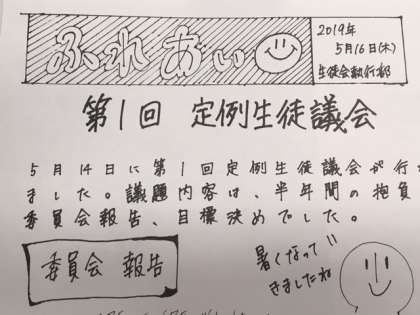 ふれあい
2019年
5月16日(木)
生徒会執行部
第1回 定例生徒議会
5月14日に第1回定例生徒議会が行
ました。議題内容は、半年間の抱負
委員会報告、目標決めでした。
委員会 報告
暑くなって
きましたね